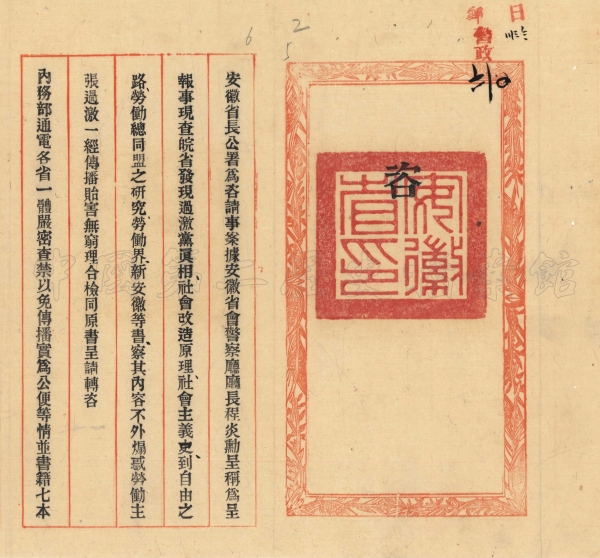 日
郵
政
6
2
5
咨
安徽省印
安徽省長公署爲咨請事案據安徽省會警察廳廳長程炎勳呈稱爲呈
報事現查皖省發現過激黨眞相、社會改造原理、社會主義史、到自由之
路、勞働總同盟之研究、勞働界、新安徽等書、察其內容不外煽惑勞働主
張過激一經傳播貽害無窮理合檢同原書呈請轉咨
內務部通電各省一體嚴密查禁以免傳播實爲公便等情並書籍七本